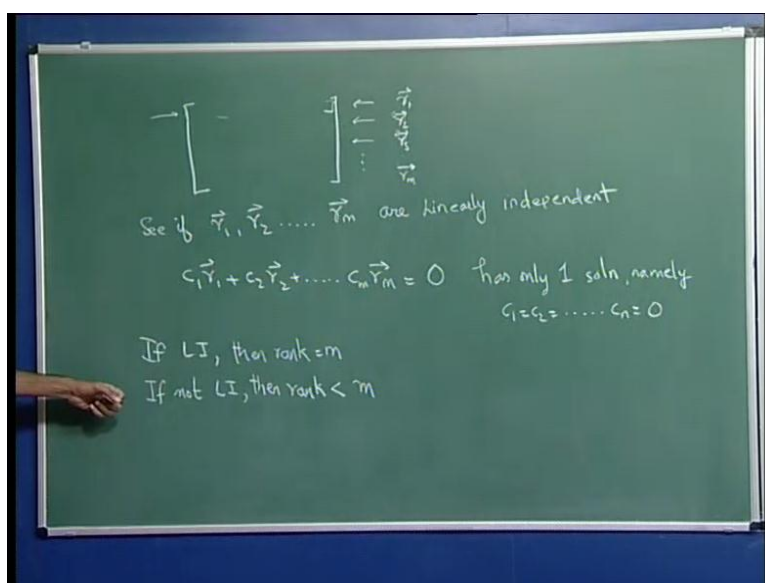 ← r⃗₁
← r⃗₂
← r⃗₃
⋮ r⃗ₘ
See if r⃗₁, r⃗₂ ..... r⃗ₘ are Linearly independent
c₁r⃗₁ + c₂r⃗₂ + ..... cₘr⃗ₘ = 0 has only 1 soln, namely
c₁ = c₂ = ...... cₙ = 0
If LI, then rank = m
If not LI, then rank < m